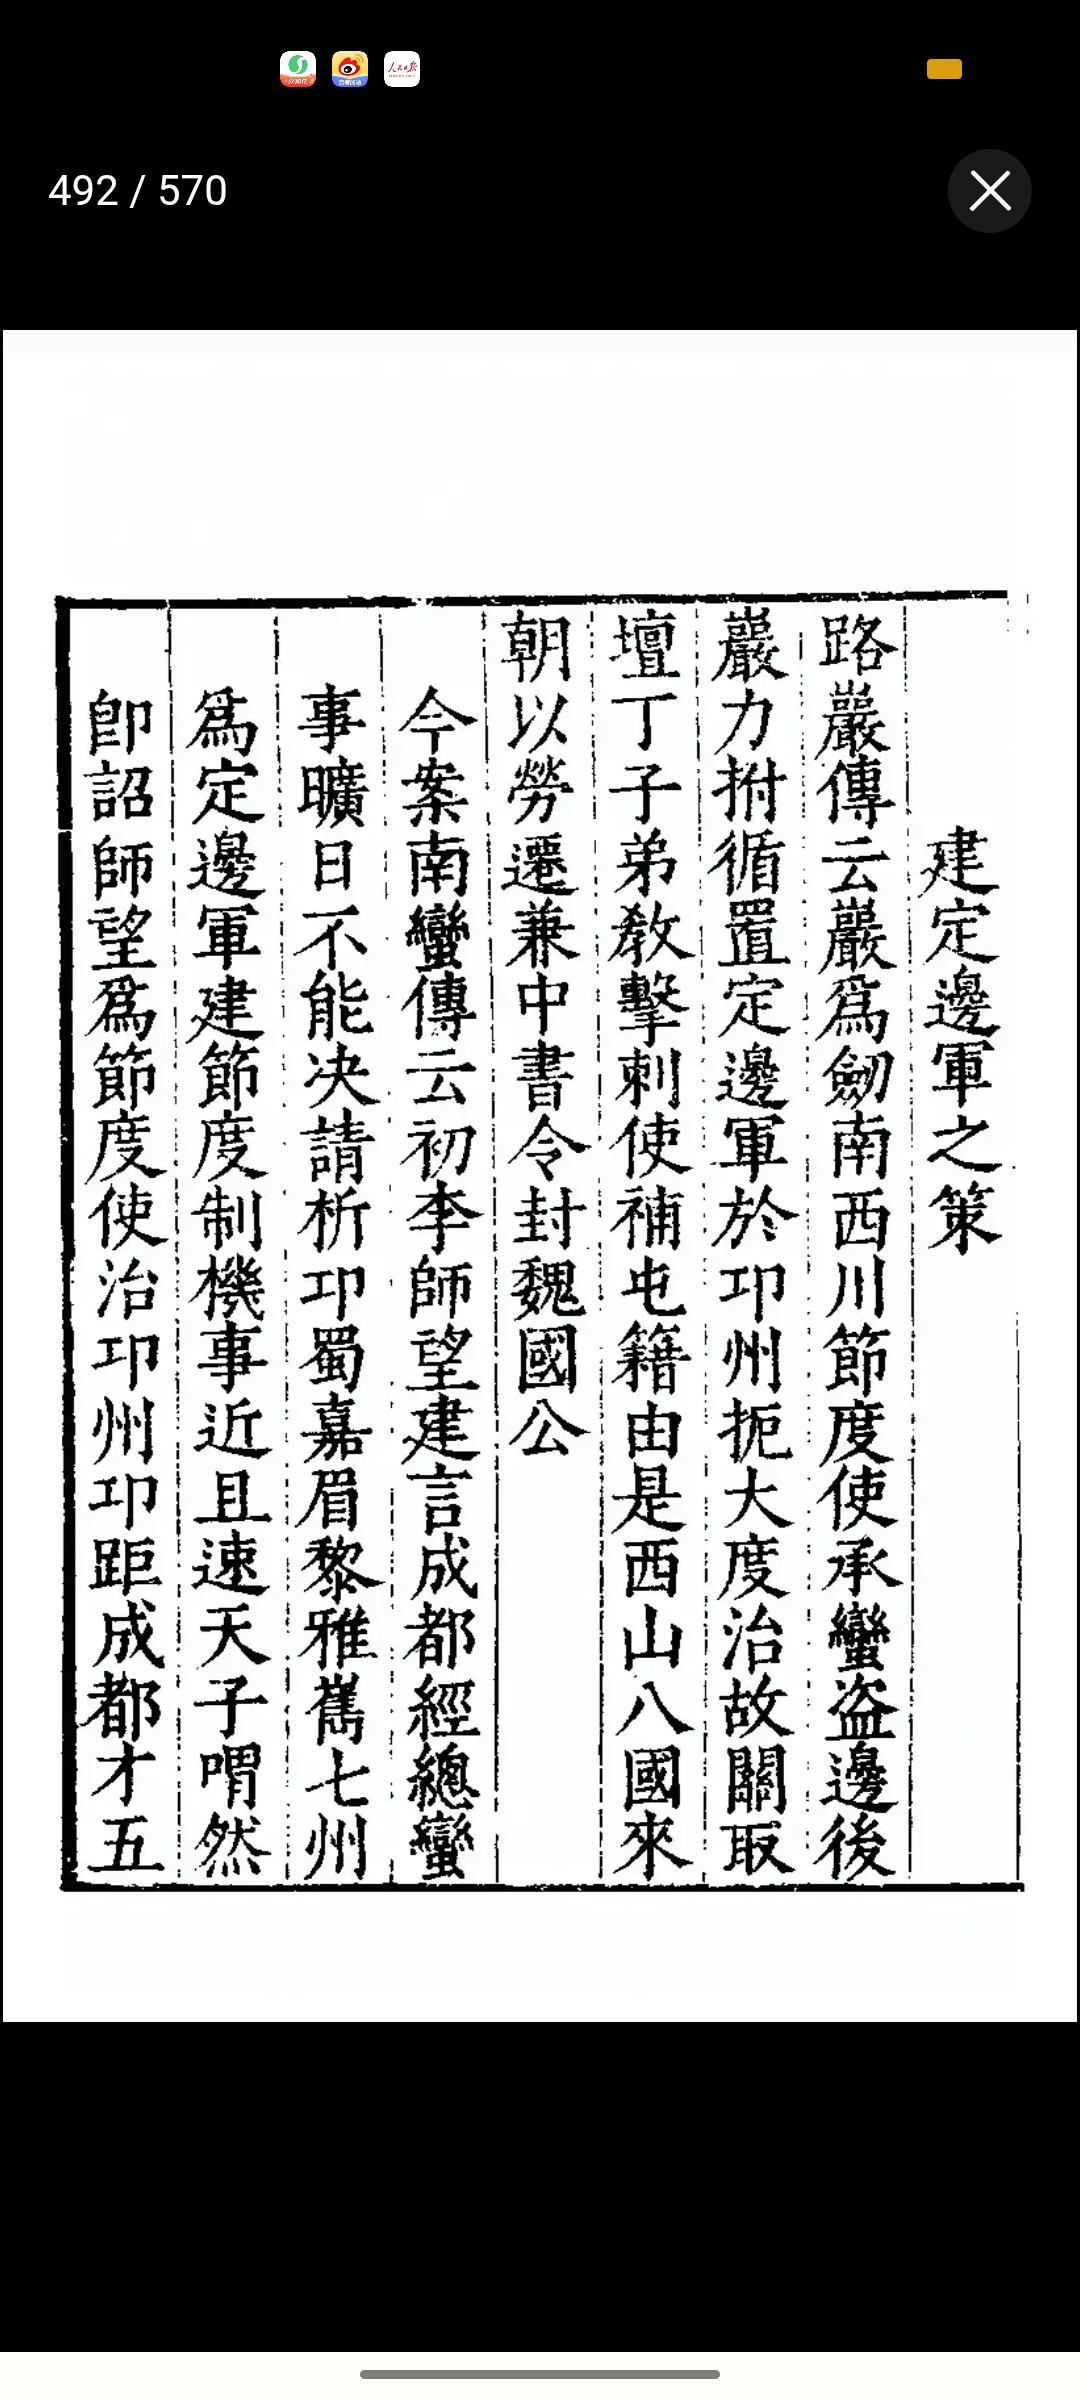 492 / 570
建定邊軍之策
路巖傳云巖爲劒南西川節度使承蠻盜邊後
巖力拊循置定邊軍於邛州扼大度治故關取
壇丁子弟教擊刺使補屯籍由是西山八國來
朝以勞遷兼中書令封魏國公
今案南蠻傳云初李師望建言成都經總蠻
事曠日不能决請析邛蜀嘉眉黎雅巂七州
爲定邊軍建節度制機事近且速天子喟然
卽詔師望爲節度使治邛州邛距成都才五
人民日报